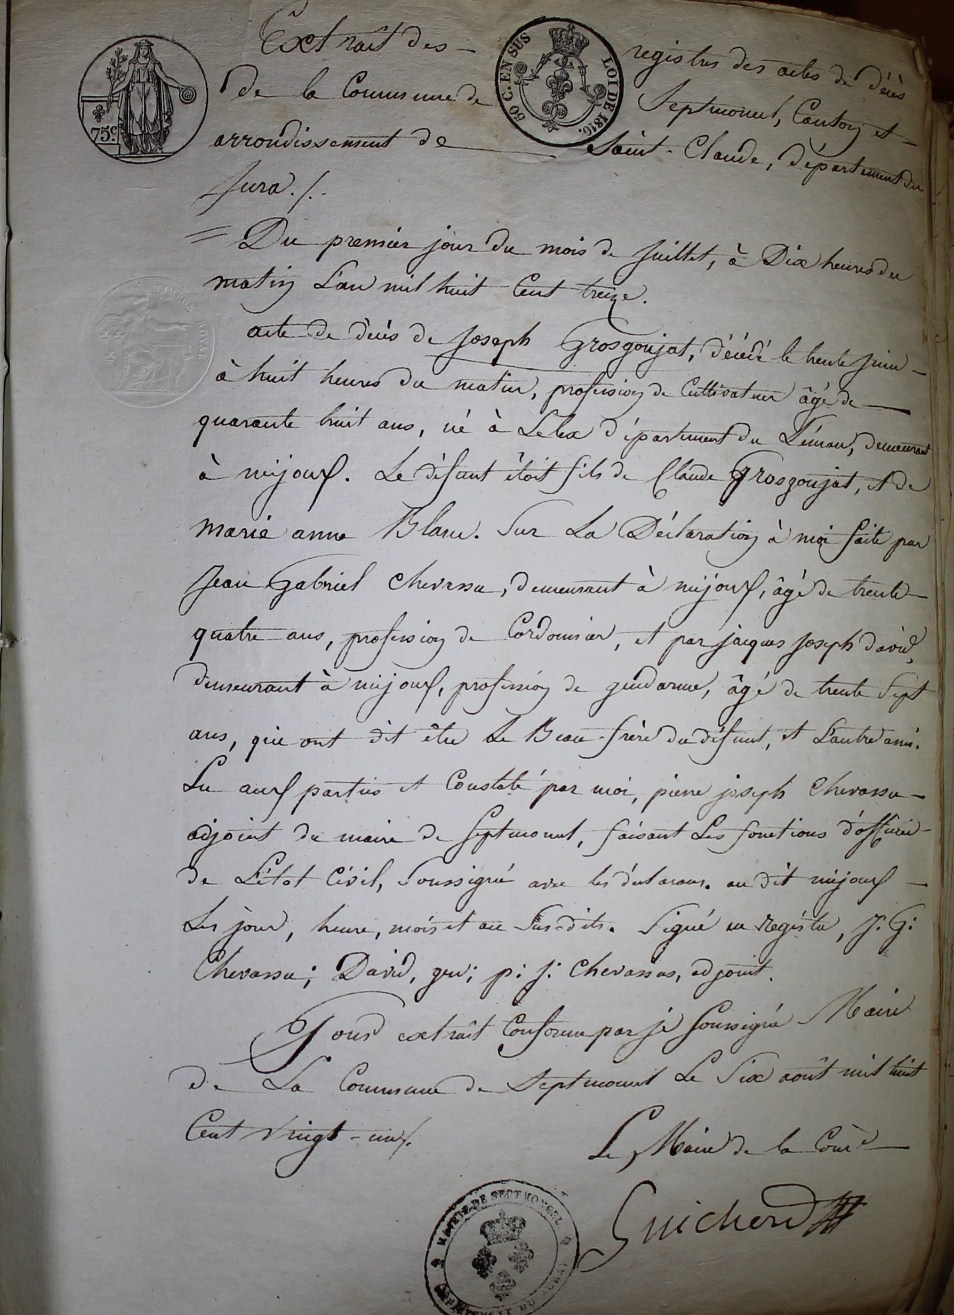 Extrait des registres des actes de décès
de la Commune de Septmoncel, Canton et
arrondissement de Saint-Claude, département du
Jura ./.
= Du premier jour du mois de Juillet, à Dix heures du
matin L'an mil huit Cent treize.
acte de décès de Joseph Grosgoujat, décédé le trente Juin
à huit heures du matin, profession de Cultivateur âgé de
quarante huit ans, né à Lelex département du Léman, demeurant
à mijoux. Le défunt étoit fils de Claude Grosgoujat, et de
marie anne Blanc. Sur La Déclaration à moi faite par
Jean Gabriel Chevassu, demeurant à mijoux, âgé de trente
quatre ans, profession de Cordonnier, et par jacques Joseph david,
demeurant à mijoux, profession de gendarme, âgé de trente Sept
ans, qui ont dit être Le Beau-frère du défunt, et L'autre ami.
Lu aux parties et Constaté par moi, pierre joseph Chevassu
adjoint du maire de Septmoncel, faisant Les fonctions d'officier
de L'état Civil, Soussigné avec les déclarans. au dit mijoux
Les jour, heure, mois et an Sus-dits. Signé au Registre, J: G:
Chevassu; David, p: j: Chevassus, adjoint.
Pour extrait Conforme par je Soussigné Maire
de La Commune de Septmoncel Le Six août mil huit
Cent vingt-neuf.
Le Maire de la Coñe
Guichard
75 c.
50 C. EN SUS
LOI DE 1816.
MAIRIE DE SEPTMONCEL
DÉPARTEMENT DU JURA